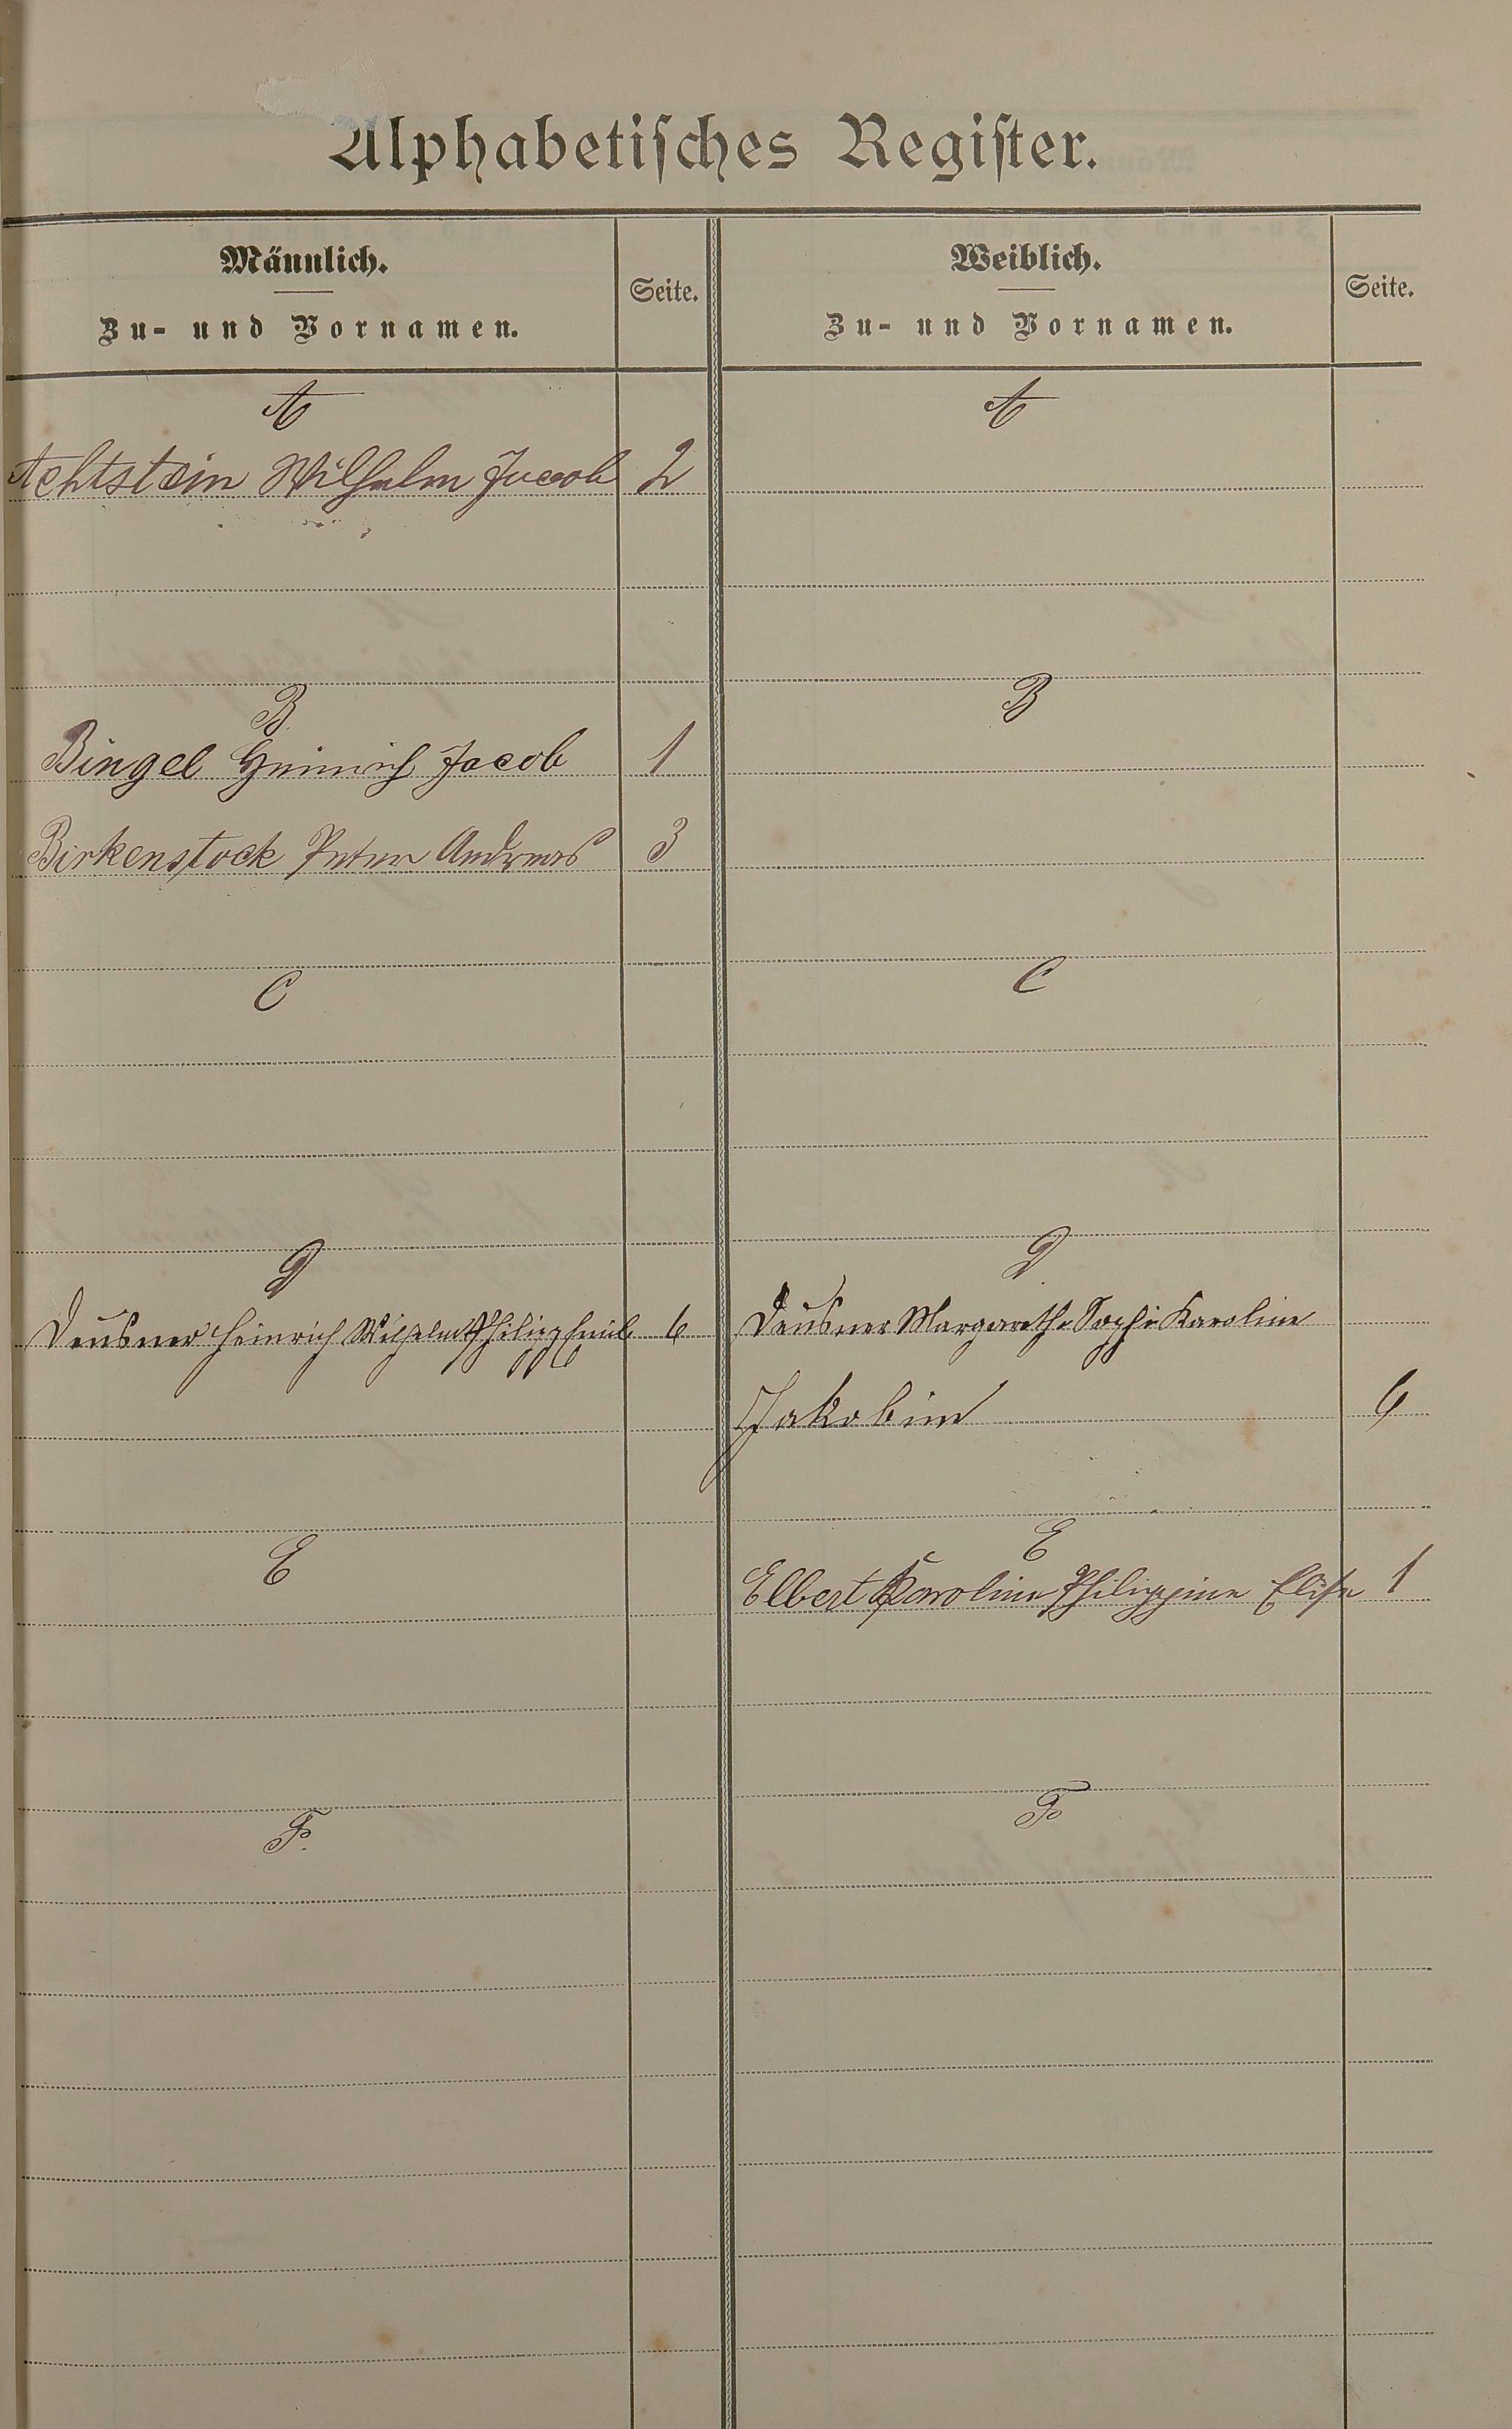 Alphabetisches Register.
Männlich.
Zu- und Vornamen.
Seite.
Weiblich.
Zu- und Vornamen.
Seite.
A
A
Achtstein Wilhelm Jacob 2
B
B
Bingel Heinrich Jacob 1
Birkenstock Peter Andreas 3
C
C
D
D
Deusner Heinrich Wilhelm Philipp Emil 6
Deusner Margarethe Sophie Karoline
Jakobine 6
E
E
Elbert Karoline Philippine Elise 1
F.
F